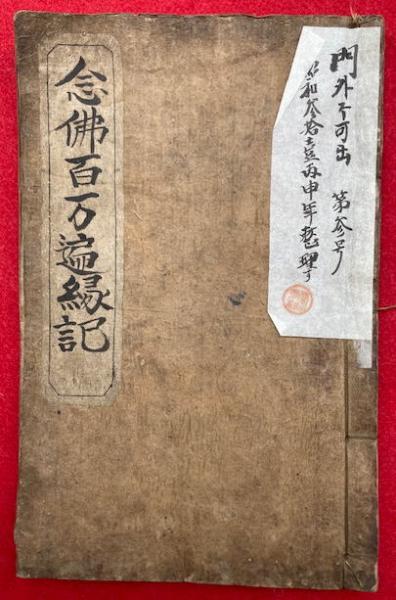 念佛百万遍縁記
門外不可出 第参号
昭和参拾壱丙申年整理ス